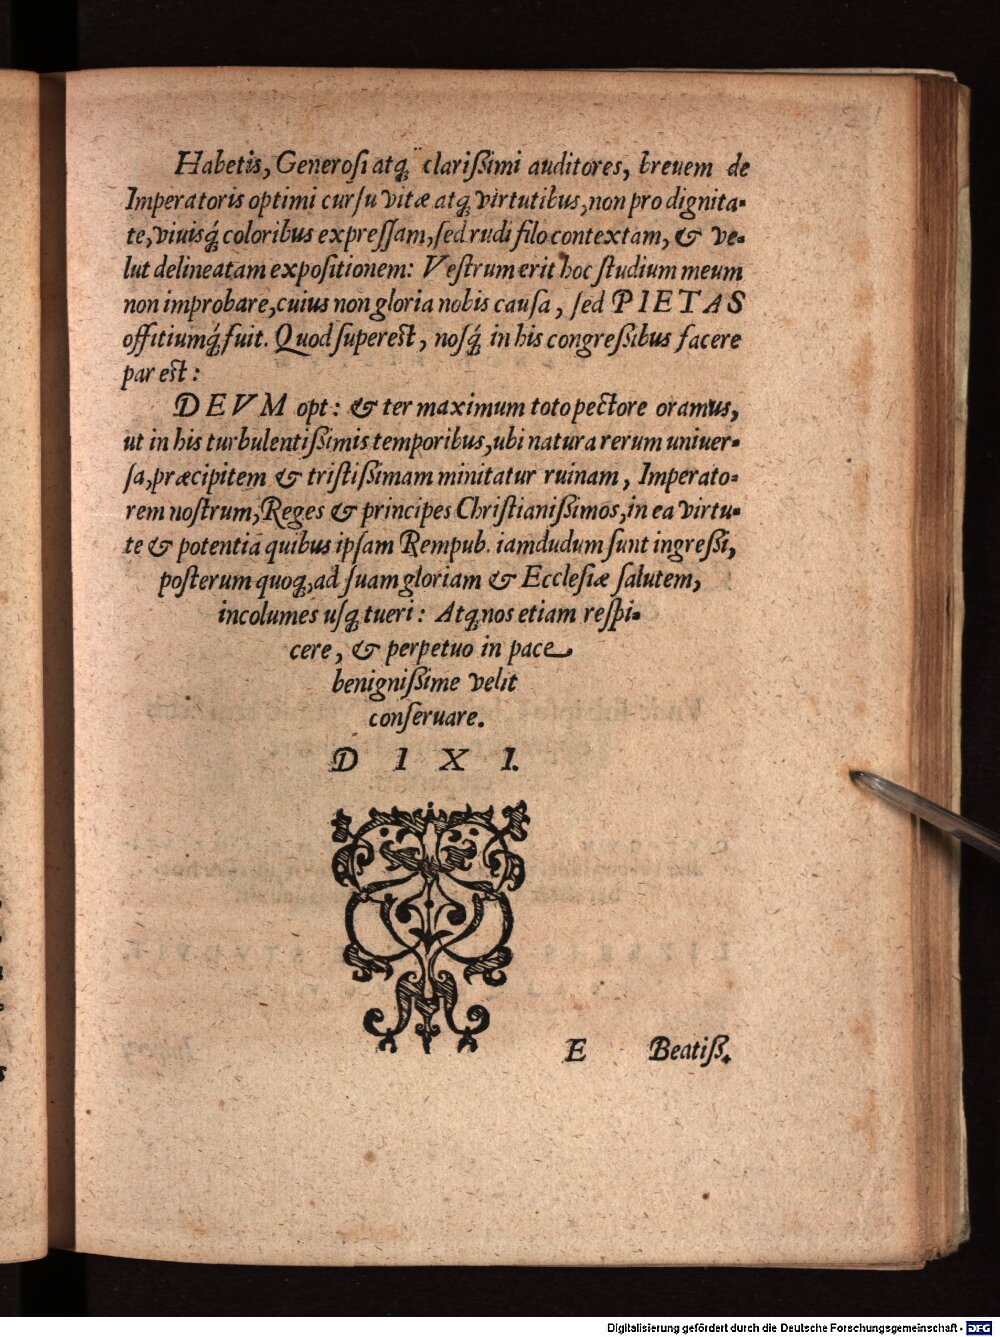 21
Habetis, Generosi atq́; clarißimi auditores, breuem de
Imperatoris optimi cursu vitæ atq́; virtutibus, non pro dignita-
te, viuisq́; coloribus expressam, sed rudi filo contextam, & ve-
lut delineatam expositionem: Vestrum erit hoc studium meum
non improbare, cuius non gloria nobis causa, sed PIETAS
offitiumq́; fuit. Quod superest, nosq́; in his congreßibus facere
par est:
DEVM opt: & ter maximum toto pectore oramus,
ut in his turbulentißimis temporibus, ubi natura rerum uniuer-
sa, præcipitem & tristißimam minitatur ruinam, Imperato-
rem nostrum, Reges & principes Christianißimos, in ea virtu-
te & potentia quibus ipsam Rempub. iamdudum sunt ingreßi,
posterum quoq́;, ad suam gloriam & Ecclesiæ salutem,
incolumes usq́; tueri: Atq́; nos etiam respi-
cere, & perpetuo in pace
benignißime velit
conseruare.
D I X I.
E Beatiß.
Digitalisierung gefördert durch die Deutsche Forschungsgemeinschaft - DFG